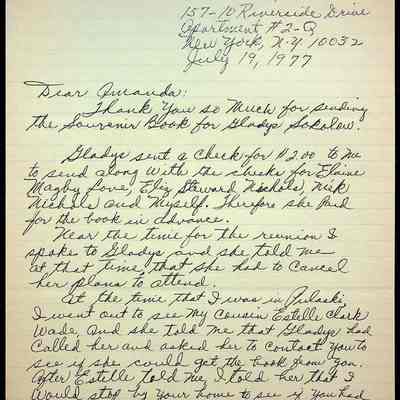 157-10 Riverside Drive
Apartment #2-Q
New York, N.Y. 10032
July 19, 1977
Dear Amanda:
Thank You so Much for sending
the Souvenir Book for Gladys Sokolow.
Gladys sent a Check for $2.00 to Me
to send along With the checks for Elaine
Magby Love, Eliz Steward Nichols, Nick
Nichols and Myself. Therefore she Paid
for the book in advance.
Near the time for the reunion I
spoke to Gladys and she told me
at that time, that she had to Cancel
her plans to attend.
At the time that I was in Pulaski,
I went out to see My Cousin Estelle Clark
Wade, and she told me that Gladys had
Called her and asked her to Contact You to
see if she could get the book from You.
After Estelle told Me, I told her that I
Would stop by Your home to see if You had